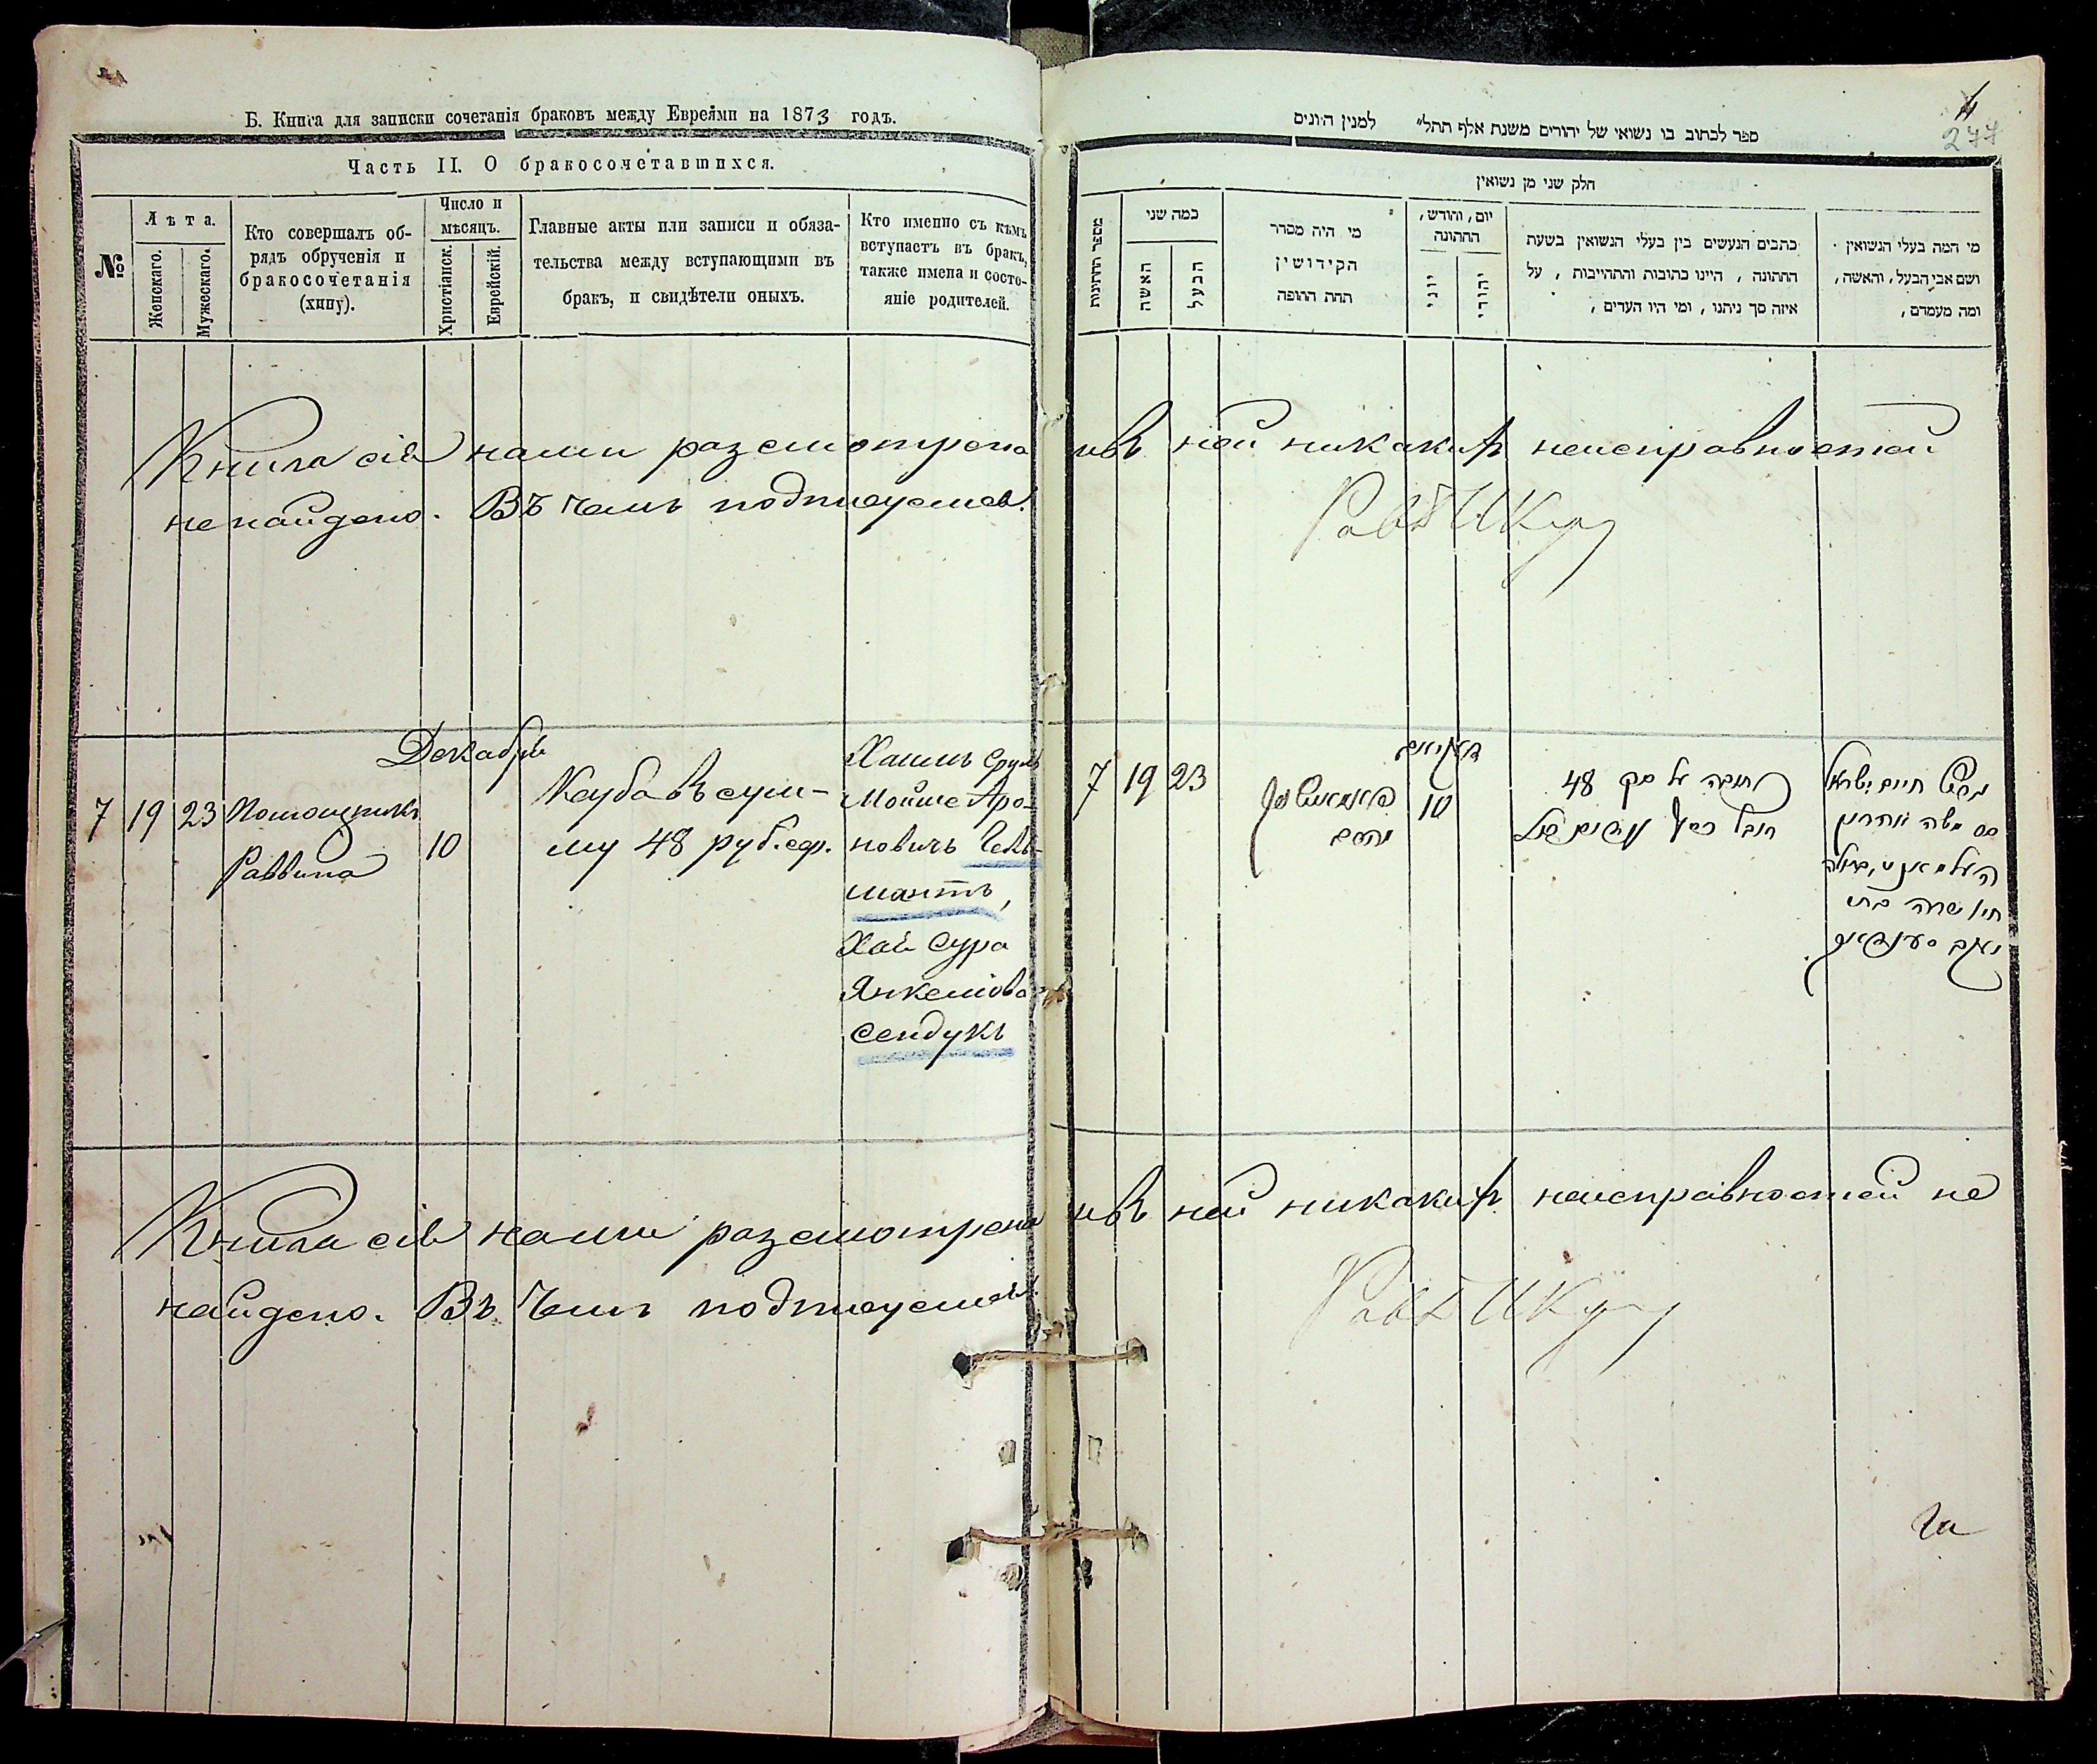 Б. Книга для записки сочетанія браковъ между Евреями на 1873 годъ.
Часть II. О бракосочетавшихся.
№
Лѣта.
Женскаго.
Мужескаго.
Кто совершалъ об-
рядъ обрученія и
бракосочетанія
(хипу).
Число и
мѣсяцъ.
Христіанск.
Еврейскій.
Главные акты или записи и обяза-
тельства между вступающими въ
бракъ, и свидѣтели оныхъ.
Кто именно съ кѣмъ
вступаетъ въ бракъ,
также имена и состо-
яніе родителей.
Книга сія нами разсмотрена
не найдено. Въ чемъ подписуемся.
Декабря
7 19 23 Помощникъ
Раввина
10
Ксуба въ сум-
му 48 руб. сер.
Хаимъ Сруль
Мойше Аро-
новичъ Гель-
мантъ,
Хая Сура
Янкелiова
Сендукъ
Книга сія нами разсмотрена
найдено. Въ чемъ подписуемся.
4
277
ספר לכתוב בו נשואי של יהודים משנת אלף תתל״ למנין היונים
חלק שני מן נשואין
מספר החתונות
כמה שני
האשה
הבעל
מי היה מסדר
הקידושין
תחת החופה
יום, וחודש,
החתונה
יוני
יהודי
כתבים הנעשים בין בעלי הנשואין בשעת
החתונה, היינו כתובות והתחייבות, על
איזה סך ניתנו, ומי היו העדים,
מי המה בעלי הנשואין
ושם אבי הבעל, והאשה,
ומה מעמדם,
и въ ней никакихъ неисправностей
7 19 23
10
כתובה על סך 48
חיים ישראל
בן משה אהרון
חיה שרה בת
и въ ней никакихъ неисправностей не